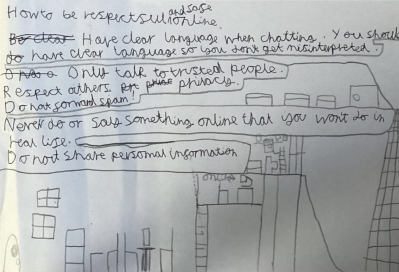 How to be respectful and safe online.
Have clear language when chatting. You should
do have clear language so you dont get misinterpreted.
Only talk to trusted people.
Respect others privacy.
Do not forward spam!
Never do or say something online that you wont do in
real life.
Do not share personal information